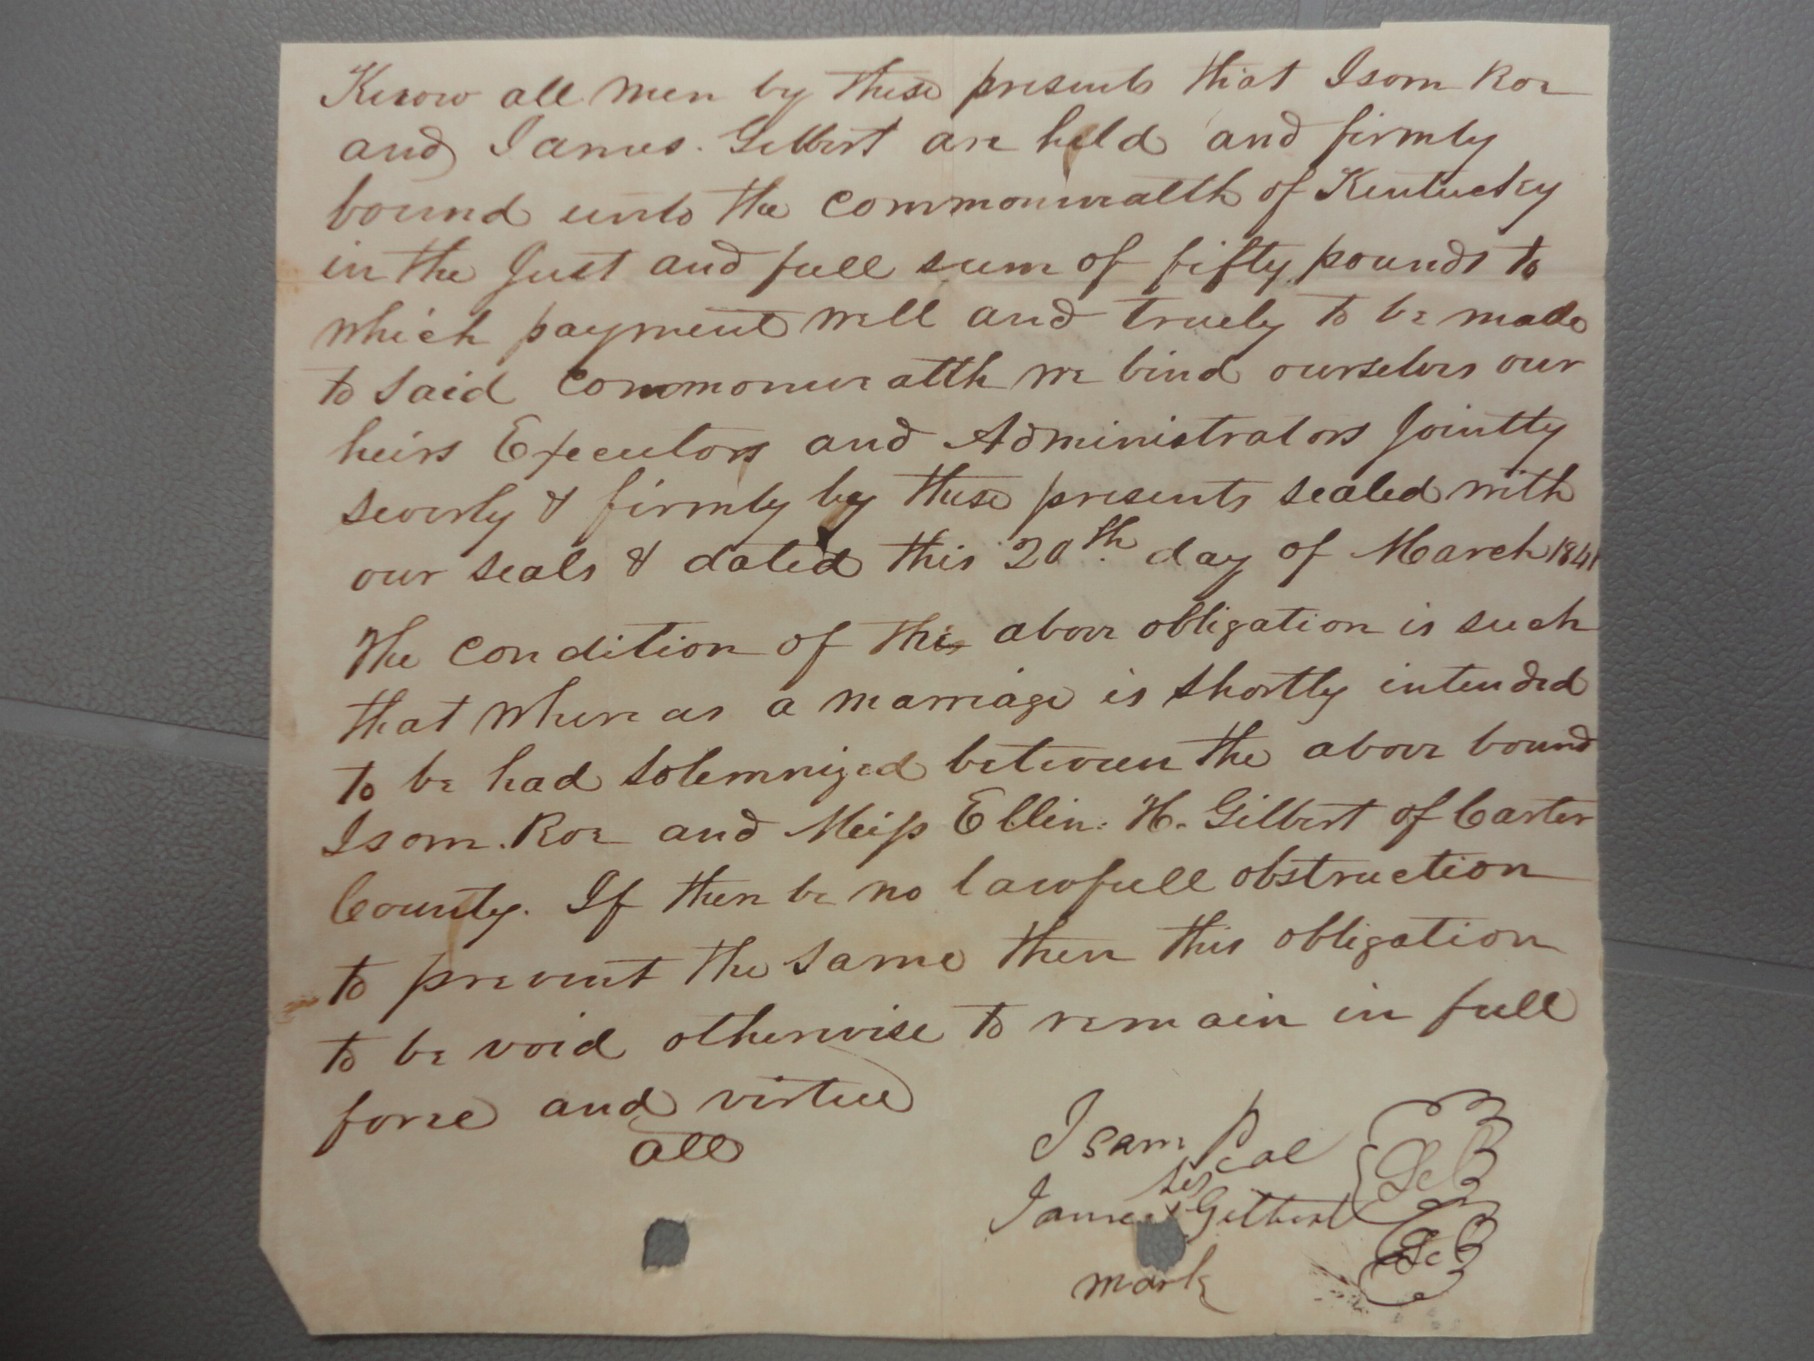 Know all men by these presents that Isom Roe
and James Gilbert are held and firmly
bound unto the commonwealth of Kentucky
in the Just and full sum of fifty pounds to
which payment well and truely to be made
to said commonwealth we bind ourselvs our
heirs Executors and Administrators Jointly
severly & firmly by these presents sealed with
our seals & dated this 20th day of March 1841
The condition of the above obligation is such
that where as a marriage is shortly intended
to be had solemnized between the above bound
Isom Roe and Miss Ellin. H. Gilbert of Carter
County. If there be no lawfull obstruction
to prevent the same then this obligation
to be void otherwise to remain in full
force and virtue
Isam
his
James x Gilbert
mark